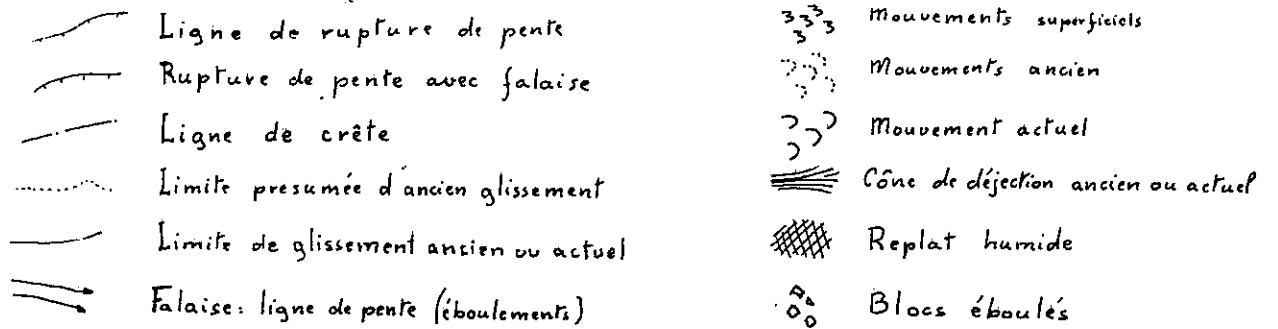 Ligne de rupture de pente
Rupture de pente avec falaise
Ligne de crête
Limite presumée d'ancien glissement
Limite de glissement ancien ou actuel
Falaise: ligne de pente (éboulements)
Mouvements superficiels
Mouvements ancien
Mouvement actuel
Cône de déjection ancien ou actuel
Replat humide
Blocs éboulés